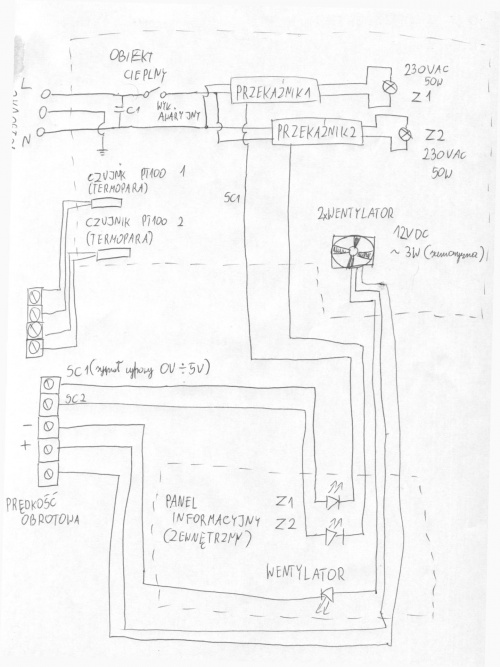 OBIEKT
CIEPLNY
L
N
C1
WYŁ.
AWARYJNY
PRZEKAŹNIK1
PRZEKAŹNIK2
230VAC
50W
Z1
Z2
230VAC
50W
CZUJNIK PT100 1
(TERMOPARA)
CZUJNIK PT100 2
(TERMOPARA)
SC1
2xWENTYLATOR
12VDC
~ 3W
SC1 (sygnał 0V÷5V)
SC2
-
+
PRĘDKOŚĆ
OBROTOWA
PANEL
INFORMACYJNY
(ZEWNĘTRZNY)
Z1
Z2
WENTYLATOR